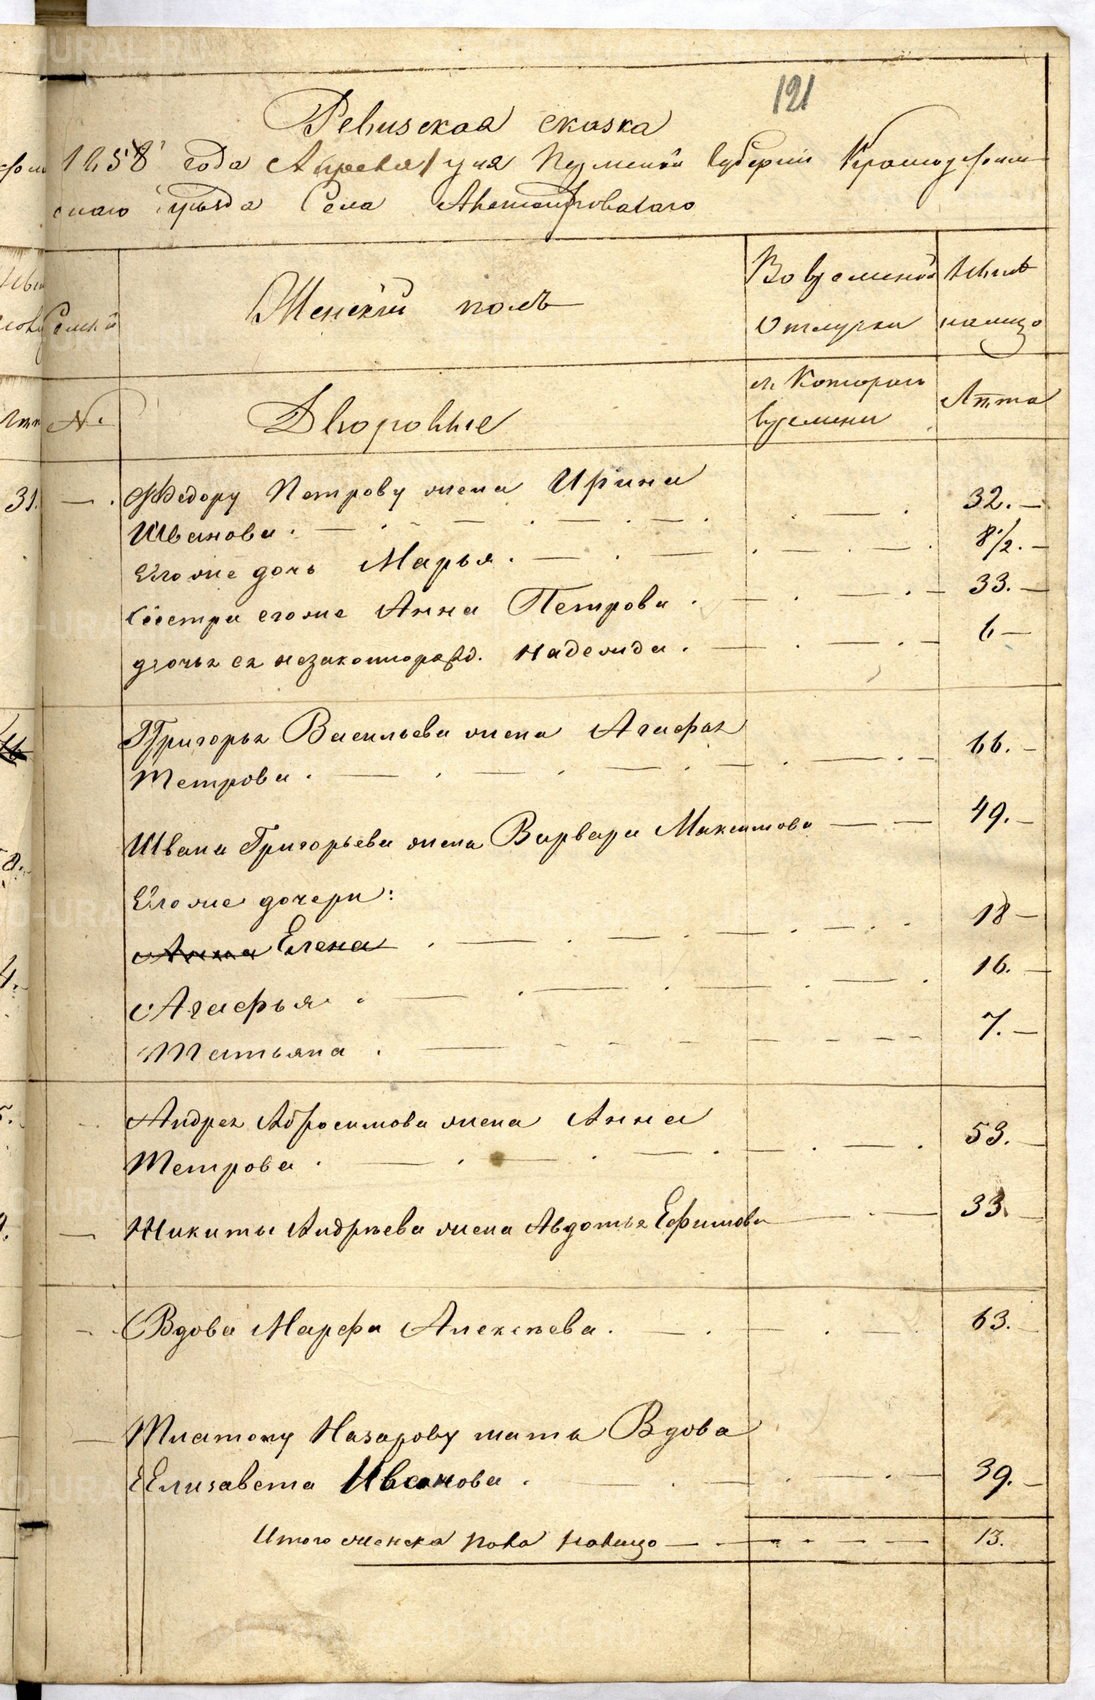 121
Ревизская сказка
1858 года Апреля дня Пермской Губернии Красноуфим
скаго уезда Села
Женскій полъ
Во временной
отлучке
Ныне
налицо
Семей
№.
Дворовые
съ Котораго
времени
Лета
31. Федору Петрову жена Ирина
Иванова. 32.
Его же дочь Марья. 8 1/2.
Сестра его же Анна Петрова. 33.
дочь ея незаконнорожд. Надежда. 6
Григорья Васильева жена Агафья
Петрова. 66.
Ивана Григорьева жена Варвара Максимова 49.
Его же дочери:
Анна Елена. 18
Агафья. 16.
Татьяна. 7.
Андрея Абросимова жена Анна
Петрова. 53.
Никиты Андреева жена Авдотья Ефимова 33.
Вдова Марфа Алексеева. 63.
Платону Назарову мать Вдова
Елизавета Иванова. 39.
Итого женска пола налицо 13.